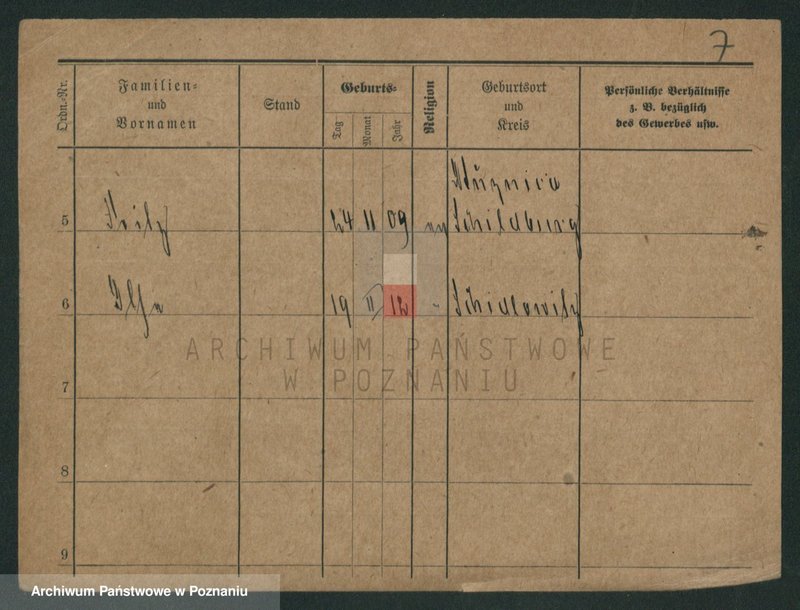 7
Ordn.-Nr.
Familien-
und
Vornamen
Stand
Geburts-
Tag
Monat
Jahr
Religion
Geburtsort
und
Kreis
Persönliche Verhältnisse
z. B. bezüglich
des Gewerbes usw.
5 Fritz 24 11 09 Schildberg
6 Ilse 19 II 12 - Schidlowitz
ARCHIWUM PAŃSTWOWE
W POZNANIU
7
8
9
Archiwum Państwowe w Poznaniu